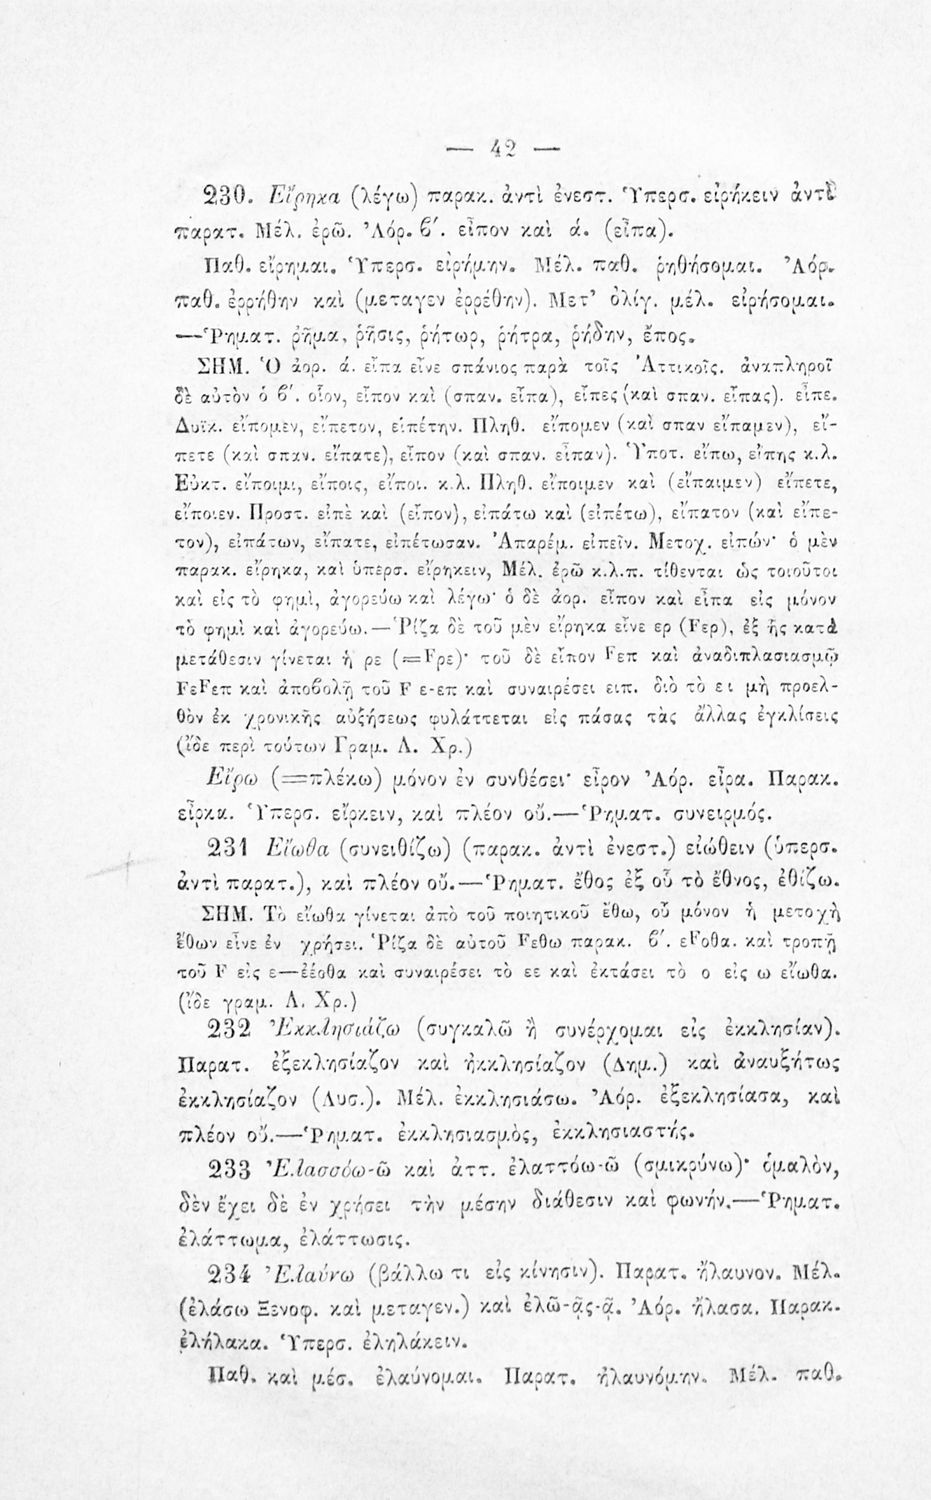 — 42 —
230. Εἴρηκα (λέγω) παρακ. ἀντὶ ἐνεστ. Ὑπερσ. εἰρήκειν ἀντὶ
παρατ. Μέλ. ἐρῶ. Ἀόρ. β′. εἶπον καὶ ά. (εἶπα).
Παθ. εἴρημαι. Ὑπερσ. εἰρήμην. Μέλ. παθ. ῥηθήσομαι. Ἀόρ.
παθ. ἐρρήθην καὶ (μεταγεν ἐρρέθην). Μετ’ ὀλίγ. μέλ. εἰρήσομαι.
—Ῥηματ. ῥῆμα, ῥῆσις, ῥήτωρ, ῥήτρα, ῥήδην, ἔπος.
ΣΗΜ. Ὁ ἀορ. ά. εἶπα εἶνε σπάνιος παρὰ τοῖς Ἀττικοῖς. ἀναπληροῖ
δὲ αὐτὸν ὁ β′. οἷον, εἶπον καὶ (σπαν. εἶπα), εἶπες (καὶ σπαν. εἶπας). εἶπε.
Δυϊκ. εἴπομεν, εἴπετον, εἰπέτην. Πληθ. εἴπομεν (καὶ σπαν εἴπαμεν), εἴ-
πετε (καὶ σπαν. εἴπατε), εἶπον (καὶ σπαν. εἶπαν). Ὑποτ. εἴπω, εἴπῃς κ.λ.
Εὐκτ. εἴποιμι, εἴποις, εἴποι. κ.λ. Πληθ. εἴποιμεν καὶ (εἴπαιμεν) εἴπετε,
εἴποιεν. Προστ. εἰπὲ καὶ (εἶπον), εἰπάτω καὶ (εἰπέτω), εἴπατον (καὶ εἴπε-
τον), εἰπάτων, εἴπατε, εἰπέτωσαν. Ἀπαρέμ. εἰπεῖν. Μετοχ. εἰπών· ὁ μὲν
παρακ. εἴρηκα, καὶ ὑπερσ. εἴρηκειν, Μέλ. ἐρῶ κ.λ.π. τίθενται ὡς τοιοῦτοι
καὶ εἰς τὸ φημὶ, ἀγορεύω καὶ λέγω· ὁ δὲ ἀορ. εἶπον καὶ εἶπα εἰς μόνον
τὸ φημὶ καὶ ἀγορεύω.—Ῥίζα δὲ τοῦ μὲν εἴρηκα εἶνε ερ (Fερ), ἐξ ἧς κατὰ
μετάθεσιν γίνεται ἡ ρε (=Fρε)· τοῦ δὲ εἶπον Fεπ καὶ ἀναδιπλασιασμῷ
FεFεπ καὶ ἀποβολῇ τοῦ F ε-επ καὶ συναιρέσει ειπ. διὸ τὸ ει μὴ προελ-
θὸν ἐκ χρονικῆς αὐξήσεως φυλάττεται εἰς πάσας τὰς ἄλλας ἐγκλίσεις
(ἴδε περὶ τούτων Γραμ. Λ. Χρ.)
Εἴρω (=πλέκω) μόνον ἐν συνθέσει· εἶρον Ἀόρ. εἶρα. Παρακ.
εἶρκα. Ὑπερσ. εἴρκειν, καὶ πλέον οὔ.—Ῥηματ. συνειρμός.
231 Εἴωθα (συνειθίζω) (παρακ. ἀντὶ ἐνεστ.) εἰώθειν (ὑπερσ.
ἀντὶ παρατ.), καὶ πλέον οὔ.—Ῥηματ. ἔθος ἐξ οὗ τὸ ἔθνος, ἐθίζω.
ΣΗΜ. Τὸ εἴωθα γίνεται ἀπὸ τοῦ ποιητικοῦ ἔθω, οὗ μόνον ἡ μετοχὴ
ἔθων εἶνε ἐν χρήσει. Ῥίζα δὲ αὐτοῦ Fεθω παρακ. β′. εFοθα. καὶ τροπῇ
τοῦ F εἰς ε—ἐέοθα καὶ συναιρέσει τὸ εε καὶ ἐκτάσει τὸ ο εἰς ω εἴωθα.
(ἴδε γραμ. Λ. Χρ.)
232 Ἐκκλησιάζω (συγκαλῶ ἢ συνέρχομαι εἰς ἐκκλησίαν).
Παρατ. ἐξεκλησίαζον καὶ ἠκκλησίαζον (Δημ.) καὶ ἀναυξήτως
ἐκκλησίαζον (Λυσ.). Μέλ. ἐκκλησιάσω. Ἀόρ. ἐξεκλησίασα, καὶ
πλέον οὔ.—Ῥηματ. ἐκκλησιασμὸς, ἐκκλησιαστής.
233 Ἐλασσόω-ῶ καὶ ἀττ. ἐλαττόω-ῶ (σμικρύνω)· ὁμαλὸν,
δὲν ἔχει δὲ ἐν χρήσει τὴν μέσην διάθεσιν καὶ φωνήν.—Ῥηματ.
ἐλάττωμα, ἐλάττωσις.
234 Ἐλαύνω (βάλλω τι εἰς κίνησιν). Παρατ. ἤλαυνον. Μέλ.
(ἐλάσω Ξενοφ. καὶ μεταγεν.) καὶ ἐλῶ-ᾷς-ᾷ. Ἀόρ. ἤλασα. Παρακ.
ἐλήλακα. Ὑπερσ. ἐληλάκειν.
Παθ. καὶ μέσ. ἐλαύνομαι. Παρατ. ἠλαυνόμην. Μέλ. παθ.